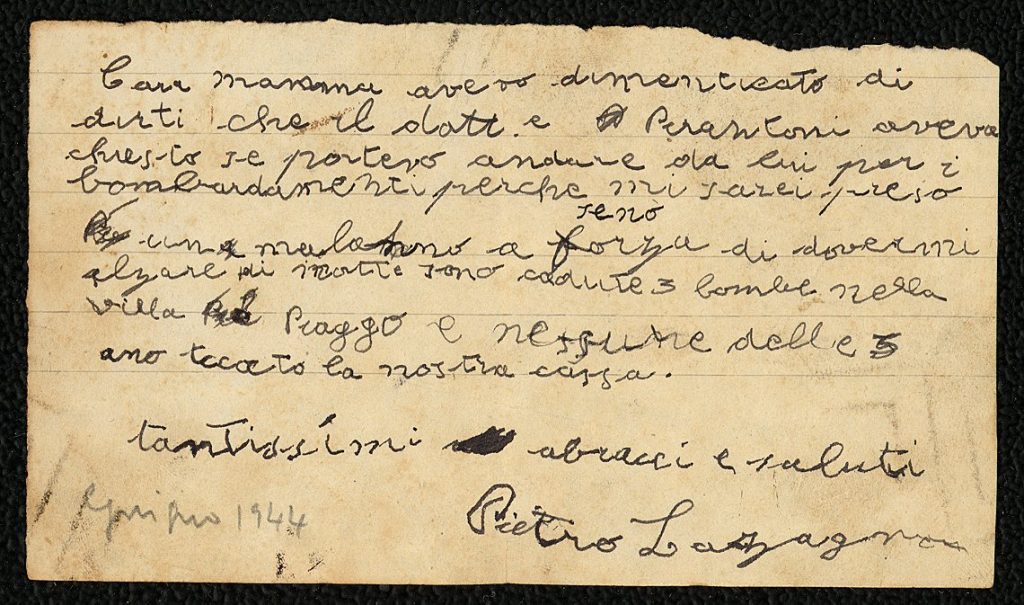 Cara mamma avevo dimenticato di
dirti che il dott. e Perantoni aveva
chiesto se portevo andare da lui per i
bombardamenti perche mi sarei preso
seno
un malanno a forza di dovermi
alzare di notte sono cadute 3 bombe nella
villa Piaggo e nessune delle 3
ano tocato la nostra cassa.
tantissimi abracci e saluti
Pietro Lazagna
1944